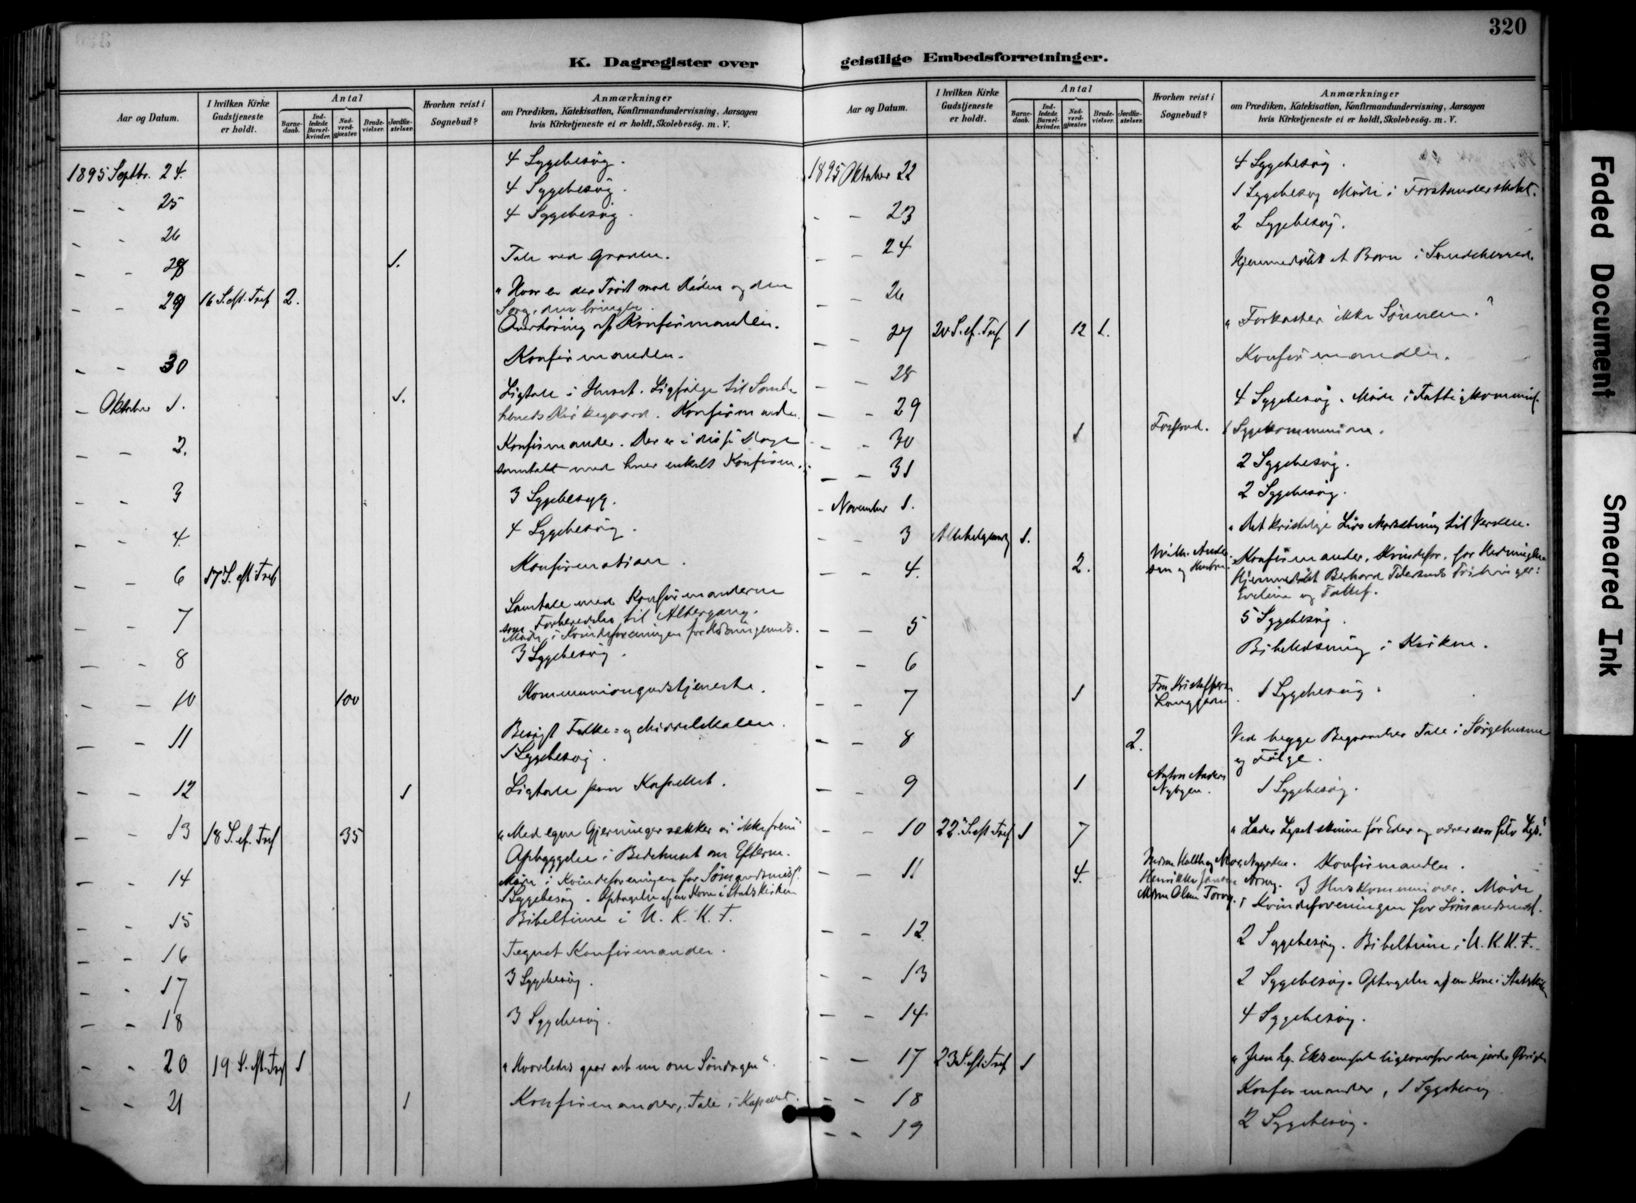 320
K. Dagregister over
geistlige Embedsforretninger.
Aar og Datum.
I hvilken Kirke Gudstjeneste er holdt.
Antal
Barnedaab.
Indledede Barselkvinder.
Nadverdgjester
Brudevielser.
Jordfæstelser.
Hvorhen reist i Sognebud?
Anmærkninger
om Prædiken, Katekisation, Konfirmandundervisning, Aarsagen
hvis Kirketjeneste ei er holdt, Skolebesøg. m. V.
1895 Septbr. 24. 4 Sygebesøg.
– – 25 4 Sygebesøg.
– – 26 4 Sygebesøg.
– – 28 1. Tale ved Graven.
– – 29 16 S. eft. Tref 2. "Hvor er der Trøst mod Døden og den
Sorg, den bringer
Overhøring af Konfirmanden.
– – 30 Konfirmanden.
– Oktober 1. 1. Ligtale i Huset. Ligfølge til
Kirkegaard. Konfirmander
– – 2. Konfirmander. Der er i disse Dage
samtalt med hver enkelt Konfirm.
– – 3 3 Sygebesøg.
– – 4. 4 Sygebesøg.
– – 6 17 S. eft. Tref Konfirmation.
– – 7 Samtale med Konfirmanderne
som Forberedelse til Altergang.
Møde i Kvindeforeningen for
– – 8 3 Sygebesøg.
– – 10 100 Kommuniongudstjeneste.
– – 11 Besøgt Folke- og Middelskolen.
1 Sygebesøg.
– – 12 1 Ligtale paa Kapellet.
– – 13 18 S. ef. Tref 35 "Med egne Gjerninger rækker vi ikke frem"
Opbyggelse i Bedehuset om Efterm.
– – 14 Møde i Kvindeforeningen for
1 Sygebesøg. Optagelse af en Kone i Statskirken
– – 15 Bibeltime i U. K. K. F.
– – 16 Tegnet Konfirmander.
– – 17 3 Sygebesøg.
– – 18 3 Sygebesøg.
– – 20 19 S. eft. Tref 1 "Hvorledes gaar det nu om Søndagen"
– – 21 1 Konfirmander, Tale i Kapellet.
Aar og Datum.
I hvilken Kirke Gudstjeneste er holdt.
Antal
Barnedaab.
Indledede Barselkvinder.
Nadverdgjester
Brudevielser.
Jordfæstelser.
Hvorhen reist i Sognebud?
Anmærkninger
om Prædiken, Katekisation, Konfirmandundervisning, Aarsagen
hvis Kirketjeneste ei er holdt, Skolebesøg. m. V.
1895 Oktober 22 4 Sygebesøg.
– – 23 1 Sygebesøg Møde i Forstanderskabet.
– – 24 2 Sygebesøg.
– – 26 Hjemmedøbt et Barn i
– – 27 20 S. ef. Tref 1 12 1. "Forkaster ikke Sønnen."
– – 28 Konfirmanden.
– – 29 4 Sygebesøg. Møde i Fattigkommis.
– – 30 1 1 Sygekommunion.
– – 31 2 Sygebesøg.
– November 1. 2 Sygebesøg.
– – 3 Allehelgensdag 1. "Det kristelige Livs Modsætning til Verden.
– – 4. 2. Konfirmander. Kvindefor. for
Hjemmedøbt
– – 5 5 Sygebesøg.
– – 6 Bibellæsning i Kirken.
– – 7 1 1 Sygebesøg.
– – 8 2. Ved begge Begravelser Tale i Sørgehusene
og Følge.
– – 9 1 Anton Anders. 1 Sygebesøg.
– – 10 22 S. eft. Tref 1 7 "Lader Lyset skinne for Eder og værer som
– – 11 4. Konfirmanden.
3 Huskommunioner. Møde
i Kvindeforeningen for
– – 12 2 Sygebesøg. Bibeltime i U. K. K. F.
– – 13 2 Sygebesøg. Optagelse af en Kone i
– – 14 4 Sygebesøg.
– – 17 23 S. eft. Tref 1 "Jesu Eksempel ligeoverfor den
– – 18 Konfirmander, 1 Sygebesøg
– – 19 2 Sygebesøg.
Faded Document
Smeared Ink